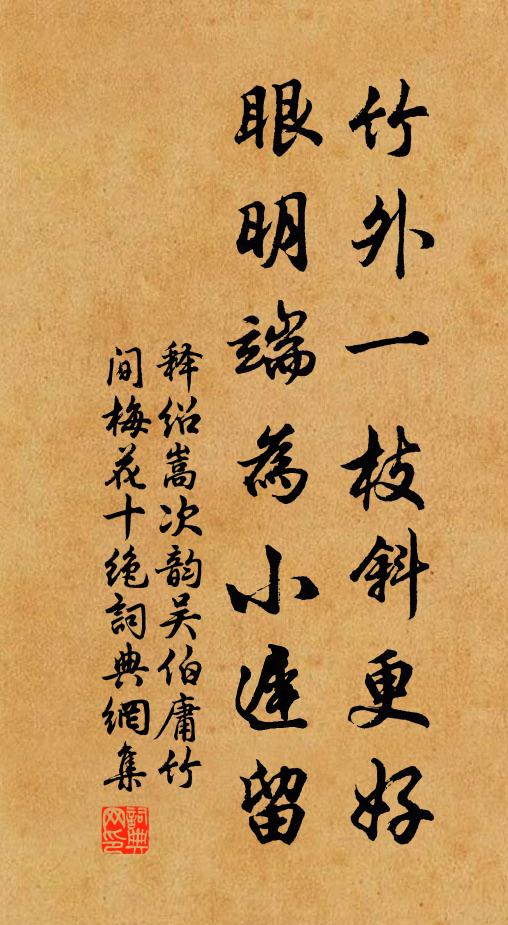 竹外一枝斜更好
眼明端為小遲留
释绍嵩次韵吴伯庸竹
间梅花十绝詞典網集
詞典网印